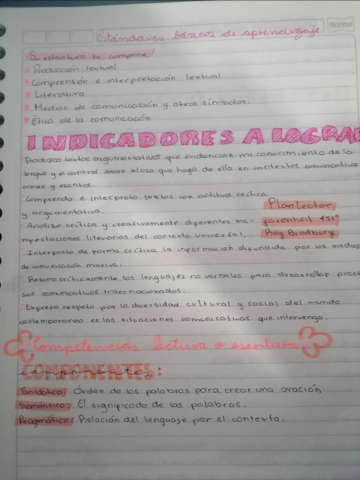 Estándares básicos de aprendizaje
Su estructura se compone:
Producción textual
Comprensión e interpretación textual
Literatura
Medios de comunicación y otros símbolos.
Ética de la comunicación
INDICADORES A LOGRAR
Produzco textos argumentativos que evidencian mi conocimiento de la
lengua y el control sobre el uso que hago de ella en contextos comunicativos
orales y escritos.
Comprendo e interpreto textos con actitud crítica
y argumentativa.
Plan Lector:
Analizo crítica y creativamente diferentes ma-
Farenheit 451°
nifestaciones literarias del contexto universal.
Ray Bradbury
Interpreto de forma crítica la información difundida por los medios
de comunicación masiva.
Retomo críticamente los lenguajes no verbales para desarrollar proce
sos comunicativos intencionados.
Expreso respeto por la diversidad cultural y social del mundo
contemporáneo en las situaciones comunicativas que intervengo.
Competencias lectura o escritura
COMPONENTES:
Sintáctico: Orden de las palabras para crear una oración.
Semántico: El significado de las palabras.
Pragmático: Relación del lenguaje por el contexto.